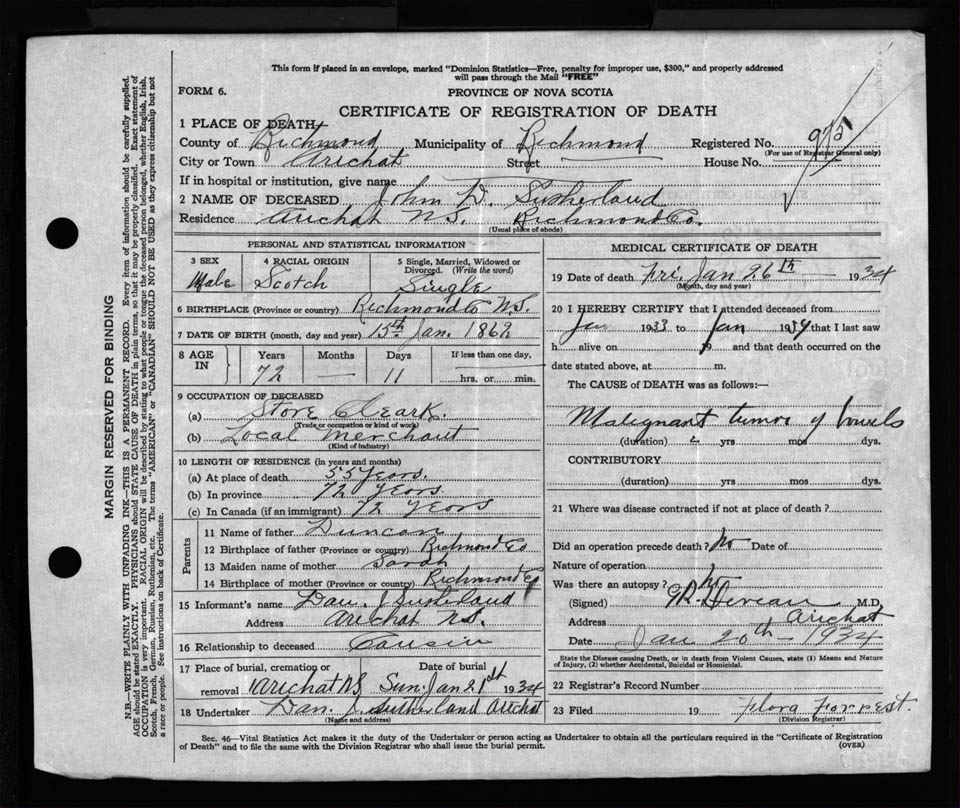 This form if placed in an envelope, marked "Dominion Statistics—Free, penalty for improper use, $300," and properly addressed
will pass through the Mail "FREE"
FORM 6.
PROVINCE OF NOVA SCOTIA
CERTIFICATE OF REGISTRATION OF DEATH
1 PLACE OF DEATH
County of Richmond Municipality of Richmond Registered No. 975
(For use of Registrar General only)
City or Town Arichat Street House No.
If in hospital or institution, give name
2 NAME OF DECEASED John D. Sutherland
Residence Arichat N.S. Richmond Co.
(Usual place of abode)
PERSONAL AND STATISTICAL INFORMATION
3 SEX 4 RACIAL ORIGIN 5 Single, Married, Widowed or
Divorced. (Write the word)
Male Scotch Single
6 BIRTHPLACE (Province or country) Richmond Co N.S.
7 DATE OF BIRTH (month, day and year) 15th Jan. 1862
8 AGE IN Years Months Days If less than one day,
72 — 11 hrs. or min.
9 OCCUPATION OF DECEASED
(a) Store Cleark.
(Trade or occupation or kind of work)
(b) Local Merchant
(Kind of industry)
10 LENGTH OF RESIDENCE (in years and months)
(a) At place of death 55 Years.
(b) In province 72 Years.
(c) In Canada (if an immigrant) 72 Years
Parents
11 Name of father Duncan
12 Birthplace of father (Province or country) Richmond Co
13 Maiden name of mother Sarah
14 Birthplace of mother (Province or country) Richmond Co
15 Informant's name Dan. J Sutherland
Address Arichat N.S.
16 Relationship to deceased Causin
17 Place of burial, cremation or Date of burial
removal Arichat NS Sun. Jan 21st 1934
18 Undertaker Dan. J. Sutherland Arichat
(Name and address)
MEDICAL CERTIFICATE OF DEATH
19 Date of death Fri. Jan 26th 1934
(Month, day and year)
20 I HEREBY CERTIFY that I attended deceased from
Jan 1933 to Jan 1934 that I last saw
h alive on 19 and that death occurred on the
date stated above, at m.
The CAUSE of DEATH was as follows:—
Malignant tumor of bowels
(duration) 2 yrs mos dys.
CONTRIBUTORY
(duration) yrs mos dys.
21 Where was disease contracted if not at place of death?
Did an operation precede death? No Date of
Nature of operation
Was there an autopsy? No
(Signed) M.D.
Address Arichat
Date Jan 20th 1934
State the Disease causing Death, or in death from Violent Causes, state (1) Means and Nature
of Injury, (2) whether Accidental, Suicidal or Homicidal.
22 Registrar's Record Number
23 Filed 19 Flora Forrest.
(Division Registrar)
Sec. 46—Vital Statistics Act makes it the duty of the Undertaker or person acting as Undertaker to obtain all the particulars required in the "Certificate of Registration
of Death" and to file the same with the Division Registrar who shall issue the burial permit.
(OVER)
MARGIN RESERVED FOR BINDING
N.B.—WRITE PLAINLY WITH UNFADING INK—THIS IS A PERMANENT RECORD. Every item of information should be carefully supplied.
AGE should be stated EXACTLY. PHYSICIANS should STATE CAUSE OF DEATH in plain terms, so that it may be properly classified. Exact statement of
OCCUPATION is very important. RACIAL ORIGIN will be described by stating to what people or tongue the deceased person belonged, whether English, Irish,
Scotch, French, German, Russian, Ruthenian, etc. The terms "AMERICAN" or "CANADIAN" SHOULD NOT BE USED as they express citizenship but not
a race or people. See instructions on back of Certificate.